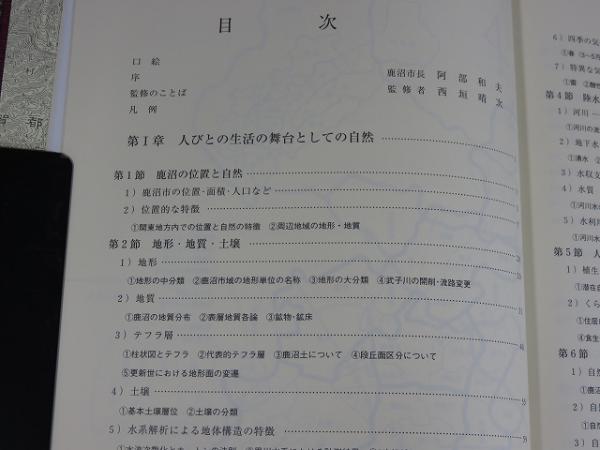 目次
口絵
序 鹿沼市長 阿部和夫
監修のことば 監修者 西垣晴次
凡例
第Ⅰ章 人びとの生活の舞台としての自然
第1節 鹿沼の位置と自然
1）鹿沼市の位置・面積・人口など
2）位置的な特徴
①関東地方内での位置と自然の特徴 ②周辺地域の地形・地質
第2節 地形・地質・土壌
1）地形
①地形の中分類 ②鹿沼市域の地形単位の名称 ③地形の大分類 ④武子川の開削・流路変更
2）地質
①鹿沼の地質分布 ②表層地質各論 ③鉱物・鉱床
3）テフラ層
①柱状図とテフラ ②代表的テフラ層 ③鹿沼土について ④段丘面区分について
⑤更新世における地形面の変遷
4）土壌
①基本土壌層位 ②土壌の分類
5）水系解析による地体構造の特徴
6）四季の気
①春（3～5月
7）特異な気
第4節 陸水
1）河川
①河川の流
2）地下水
①湧水
3）水収支
4）水質
①河川水
5）水利用
①河川水
第5節 人
1）植生
①潜在自
2）くら
①住居
④食生
第6節
1）自然
①鹿沼
2）自然
①自然
3）自然